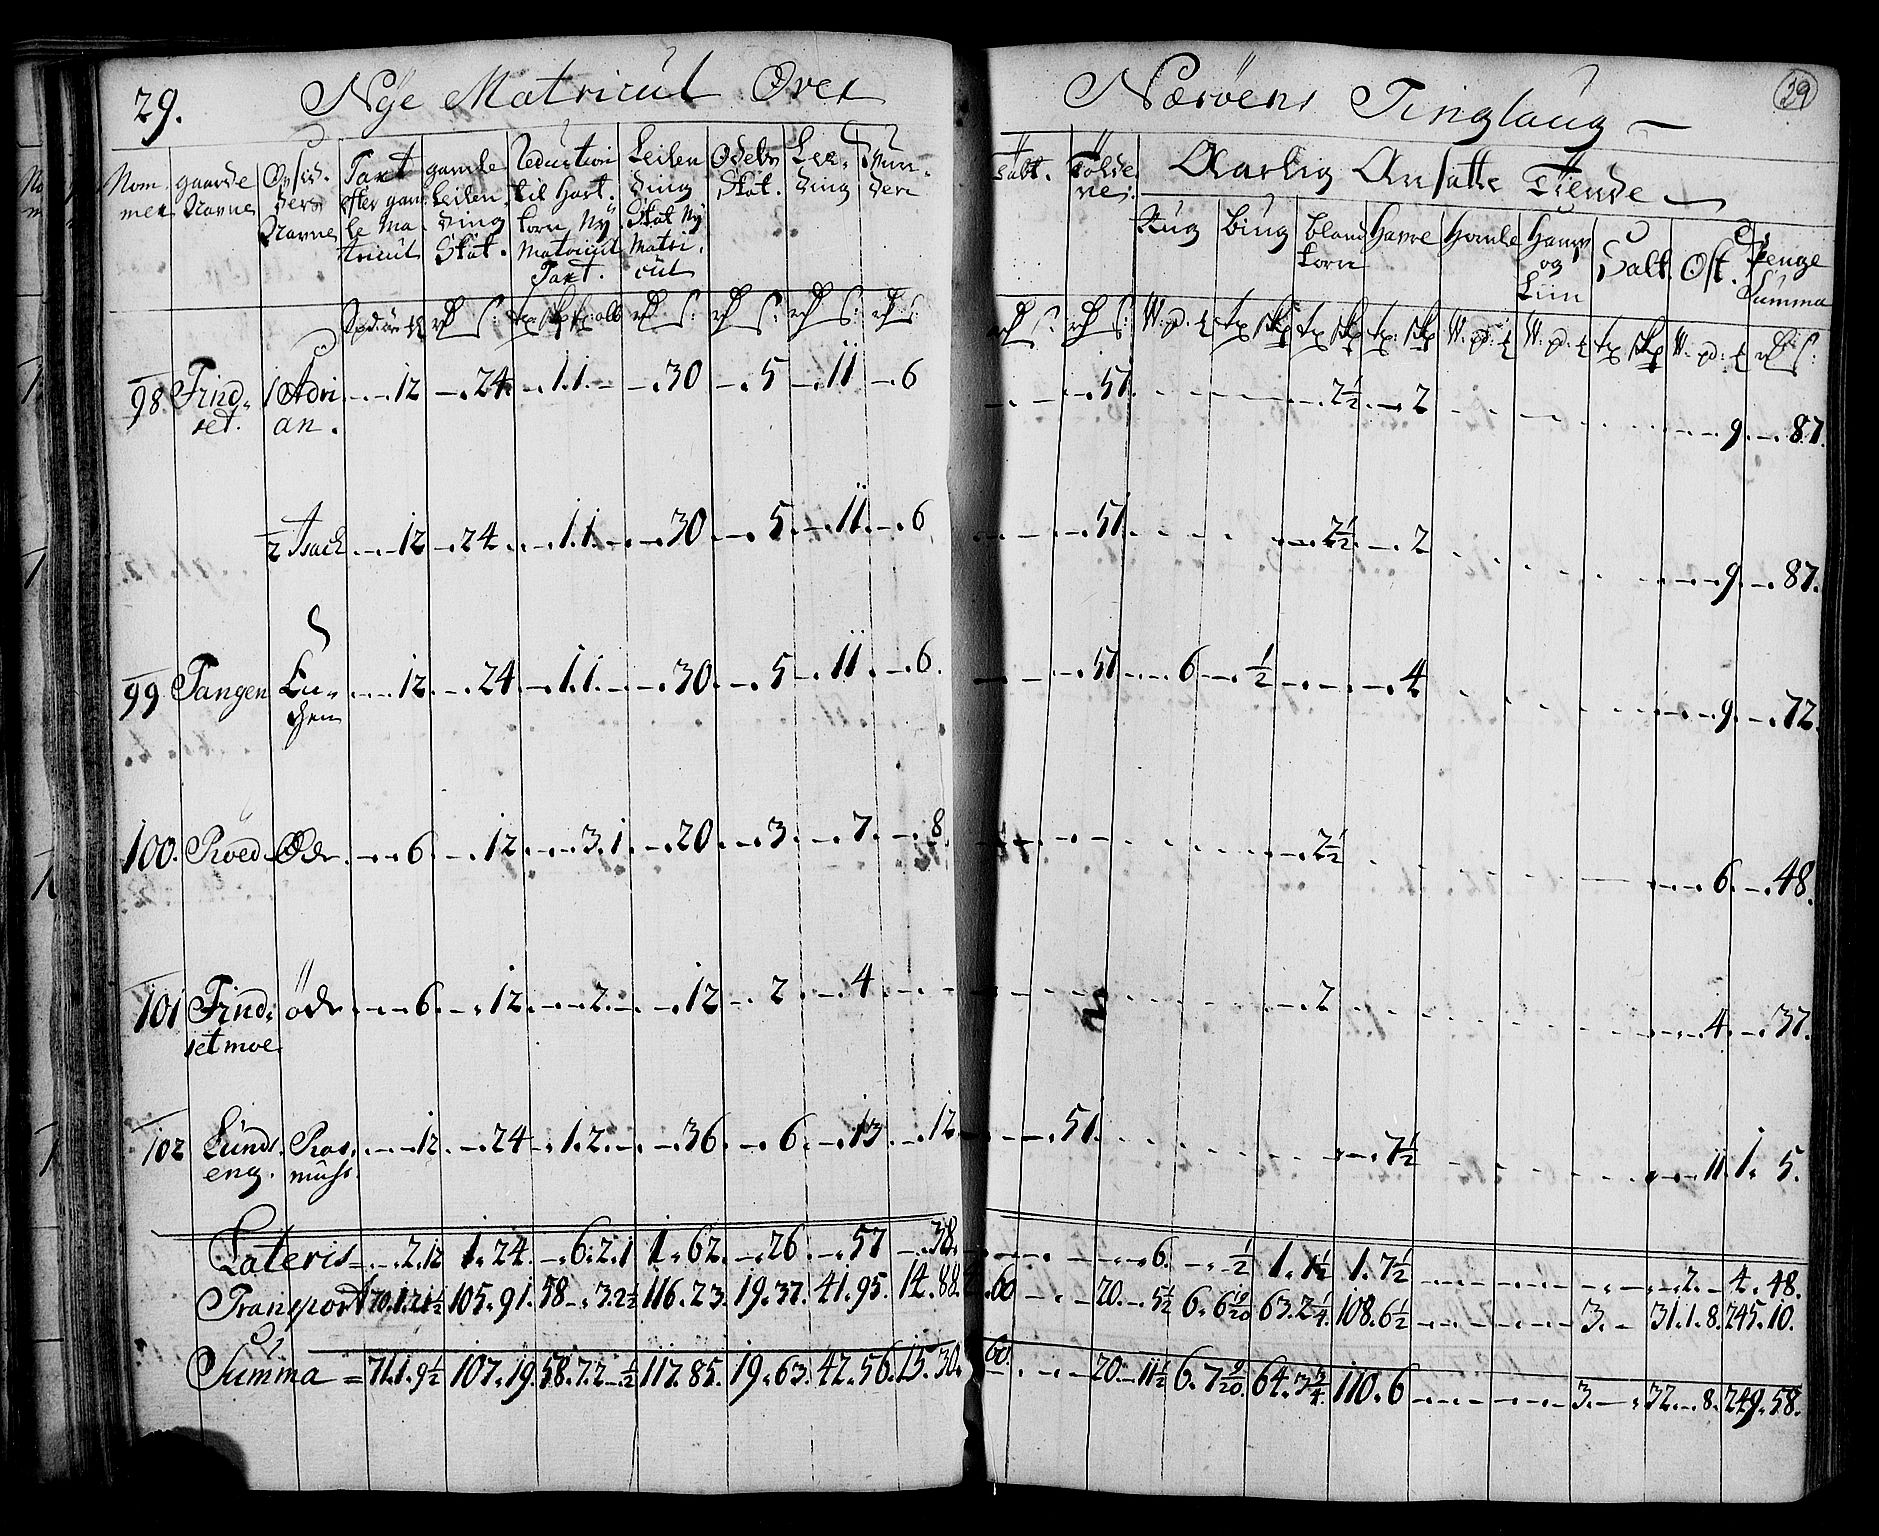 29. Nÿe Matricul Over Nærøens Tinglaug — 29
Nom mer | gaarde Navne | Opsid ders Navne | Taxt efter gam le Ma tricul | gamle Leilen ding Skat. | Reduction til Hart. korn Nÿ Matricul Taxt. | Leilen ding Skat Nÿ Matri. cul | Odels Skat. | Lee- ding | Vin- deri | Salt. | Tolde ne: | Aarlig Ansatte Tiende
Rug | bÿug | bland korn | Havre | Homle | Hamp og Liin | Salt. | Ost. | Penge Summa
98 Find- set. 1 Adri an. 12 24 1.1 30 5 11 6 51. 2½ 2 9 87.
2 Isach 12 24 1.1 30 5 11 6 51. 2½ 2 9 87.
99 Tangen Lu- chen 12 24 1.1 30 5 11 6 51 6 ½ 4 9 72.
100. Röed Øde 6 12 3.1 20 3 7 8 2½ 6 48.
101 Find- set moe øde 6 12 2 12 2 4 2 4 37.
102 Lunds eng. Ras- muhs. 12 24 1.2 36 6 13 12 51. 7½ 11 1. 5.
Lateris 2.12 1.24 6.2.1 1.62 26 57 38. 6. ½ 1.1½ 1.7½ 2. 4.48.
Transport 70.1.21½ 105.91. 58 3.2½ 116.23. 19.37. 41.95. 14.88. 60 20. 5½ 6.6 19/20 63.2¼ 108.6½ 3. 31.1.8. 245.10.
Summa = 71.1.9½ 107.19. 58.7.2½ 117.85. 19.63. 42.56. 15.30. 60. 20. 11½ 6.7 9/20 64.3¾ 110.6 3. 32. 8. 249.58.